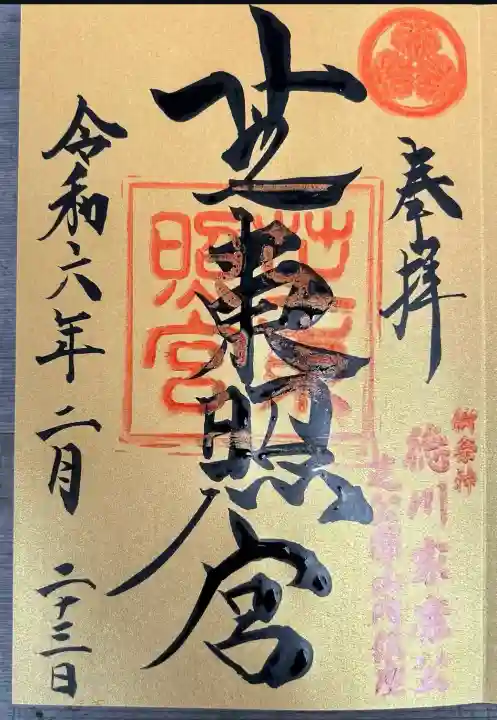 奉拝
御祭神
徳川家康公
芝東照宮
芝東照宮
令和六年二月二十三日